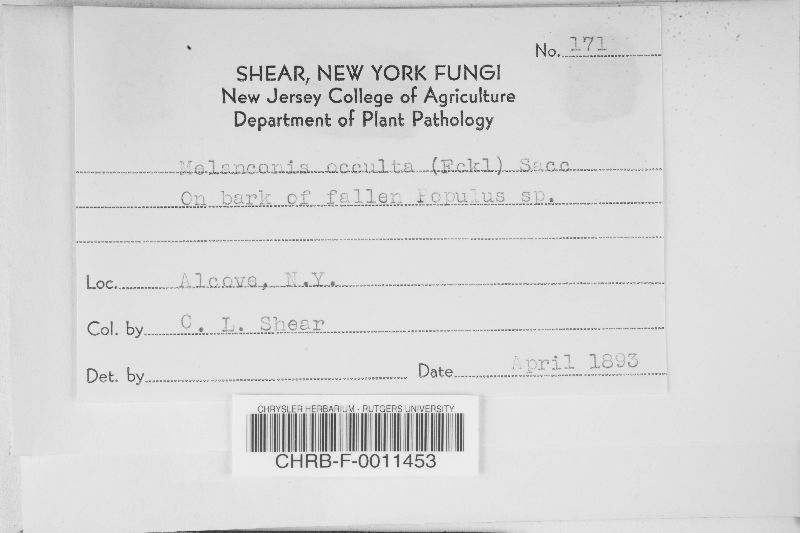 No. 171
SHEAR, NEW YORK FUNGI
New Jersey College of Agriculture
Department of Plant Pathology
Melanconis occulta (Fckl) Sacc
On bark of fallen Populus sp.
Loc. Alcove, N.Y.
Col. by C. L. Shear
Det. by Date April 1893
CHRYSLER HERBARIUM - RUTGERS UNIVERSITY
CHRB-F-0011453